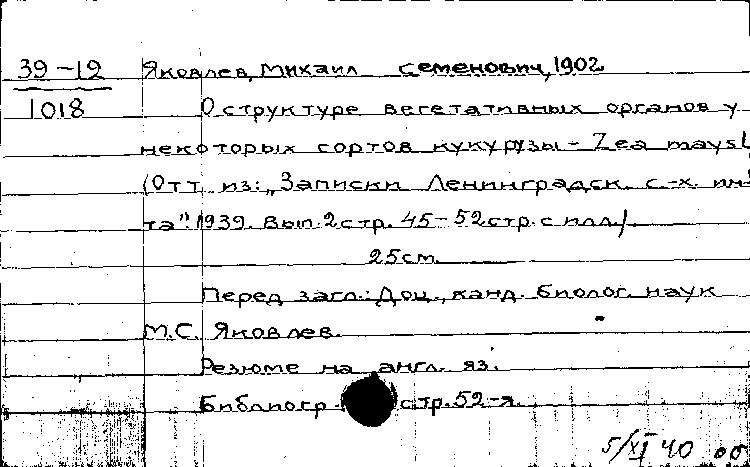 39-12 Яковлев, Михаил Семенович, 1902
1018 О структуре вегетативных органов у
некоторых сортов кукурузы - Zea mays L
(Отт. из: „Записки Ленинградск. с.-х. ин-
та". 1939. Вып. 2 стр. 45-52 стр. с илл.)
25см.
Перед загл.: Доц., канд. биолог. наук
М.С. Яковлев.
Резюме на англ. яз.
Библиогр. стр. 52-я.
5/XI 40